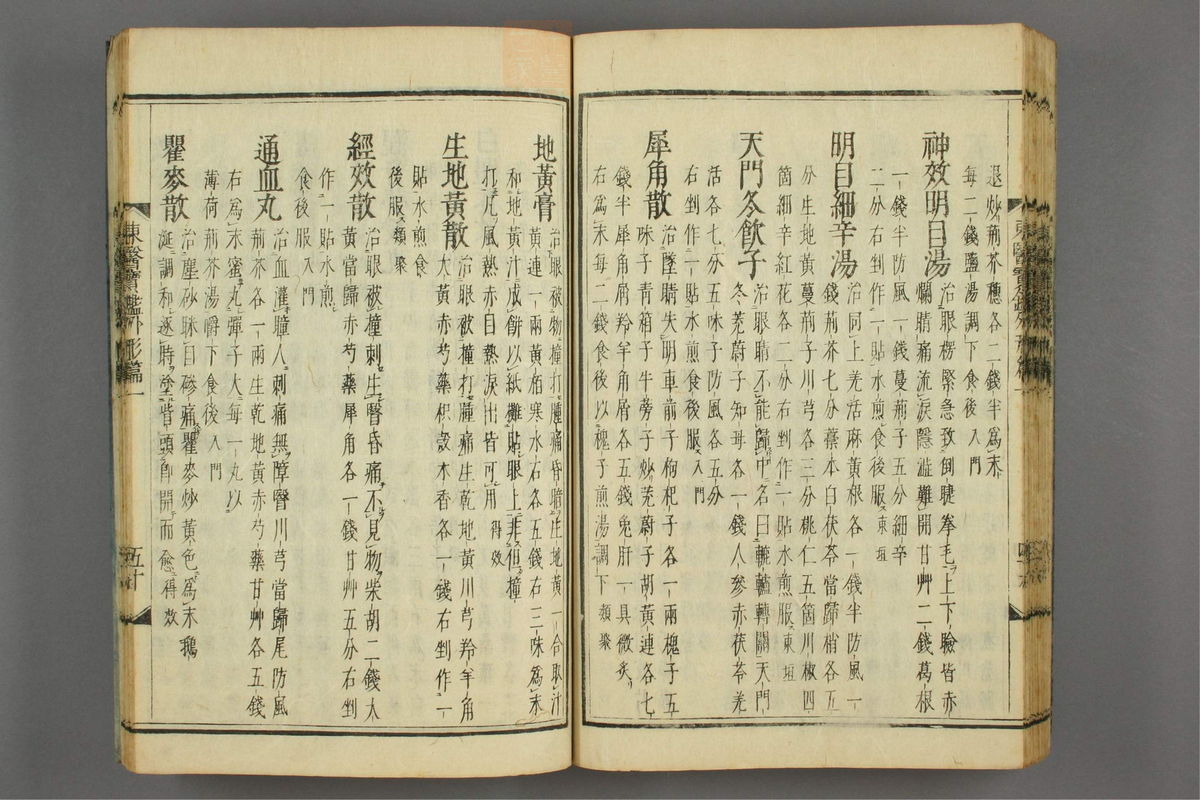 退炒荊芥穗各二錢半爲末
每二錢鹽湯調下食後入門
神效明目湯 治眼楞緊急致倒睫拳毛上下瞼皆赤
爛睛痛流淚隱澁難開甘艸二錢葛根
一錢半防風一錢蔓荊子五分細辛
二分右剉作一貼水煎食後服東垣
明目細辛湯 治同上羌活麻黃根各一錢半防風一
錢荊芥七分藁本白茯苓當歸梢各五
分生地黃蔓荊子川芎各三分桃仁五箇川椒四
箇細辛紅花各二分右剉作一貼水煎服東垣
天門冬飮子 治眼睛不能歸中名曰轆轤轉關天門
冬茺蔚子知母各一錢人參赤茯苓羌
活各七分五味子防風各五分
右剉作一貼水煎食後服入門
犀角散 治墜睛失明車前子枸杞子各一兩槐子五
味子靑箱子牛蒡子炒茺蔚子胡黃連各七
錢半犀角屑羚羊角屑各五錢兎肝一具微炙
右爲末每二錢食後以槐子煎湯調下類聚
地黃膏 治眼被物撞打腫痛昏暗生地黃一合取汁
黃連一兩黃栢寒水石各五錢右三味爲末
和地黃汁成餠以紙攤貼眼上非但撞
打凡風熱赤目熱淚出皆可用得效
生地黃散 治眼被撞打腫痛生乾地黃川芎羚羊角
大黃赤芍藥枳殼木香各一錢右剉作一
貼水煎食
後服類聚
經效散 治眼被撞刺生瞖昏痛不見物柴胡二錢大
黃當歸赤芍藥犀角各一錢甘艸五分右剉
作一貼水煎
食後服入門
通血丸 治血灌瞳人刺痛無障瞖川芎當歸尾防風
荊芥各一兩生乾地黃赤芍藥甘艸各五錢
右爲末蜜丸彈子大每一丸以
薄荷荊芥湯嚼下食後入門
瞿麥散 治塵砂眯目磣痛瞿麥炒黃色爲末鵝
涎調和逐時塗眥頭卽開而愈得效
東醫寶鑑外形篇一
五十